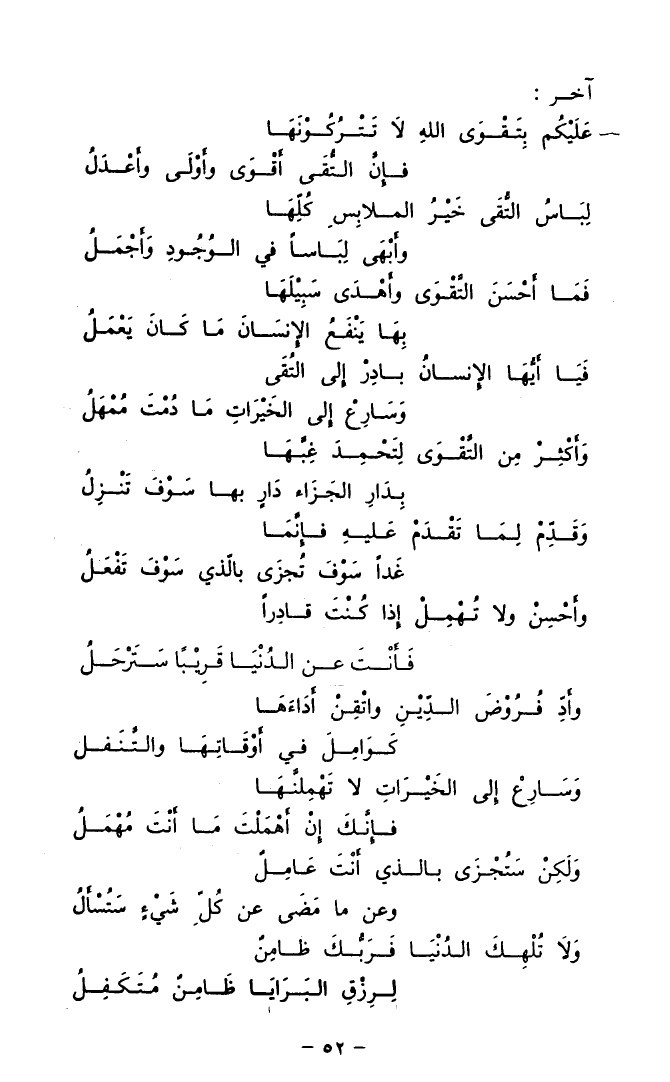 آخر :
— عَلَيْكُم بِتَقْوَى اللهِ لَا تَتْرُكُوْنَهَا
فَإِنَّ التُّقَى أَقْوَى وَأَوْلَى وَأَعْدَلُ
لِبَاسُ التُّقَى خَيْرُ المَلَابِسِ كُلِّهَا
وَأَبْهَى لِبَاساً في الوُجُودِ وَأَجْمَلُ
فَمَا أَحْسَنَ التَّقْوَى وَأَهْدَى سَبِيْلَهَا
بِهَا يَنْفَعُ الإِنسَانَ مَا كَانَ يَعْمَلُ
فَيَا أَيُّهَا الإِنسانُ بَادِرْ إِلى التُّقَى
وَسَارِعْ إِلى الخَيْرَاتِ مَا دُمْتَ مُمْهَلُ
وَأَكْثِرْ مِن التَّقْوَى لِتَحْمِدَ غِبَّهَا
بِدَارِ الجَزَاءِ دَارٍ بِهَا سَوْفَ تَنْزِلُ
وَقَدِّمْ لِمَا تَقْدَمْ عَليهِ فَإِنَّمَا
غَداً سَوْفَ تُجزَى بالَّذي سَوْفَ تَفْعَلُ
وَأَحْسِنْ ولا تُهْمِلْ إِذا كُنْتَ قَادِراً
فَأَنْتَ عَن الدُّنْيَا قَرِيْبًا سَتَرْحَلُ
وَأَدِّ فُرُوْضَ الدِّيْنِ واتْقِنْ أَدَاءَهَا
كَوَامِلَ في أَوْقَاتِهَا والتَّنَفلِ
وَسَارِعْ إِلى الخَيْرَاتِ لا تَهْمِلَنَّهَا
فَإِنَّكَ إِنْ أَهْمَلْتَ مَا أَنْتَ مُهْمَلُ
وَلَكِنْ سَتُجْزَى بالذي أَنْتَ عَامِلٌ
وعن ما مَضَى عن كُلِّ شَيْءٍ سَتُسْأَلُ
وَلَا تُلْهِكَ الدُّنْيَا فَرَبُّكَ ظَامِنٌ
لِرِزْقِ البَرَايَا ظَامِنٌ مُتَكَفِلُ
– ٥٢ –